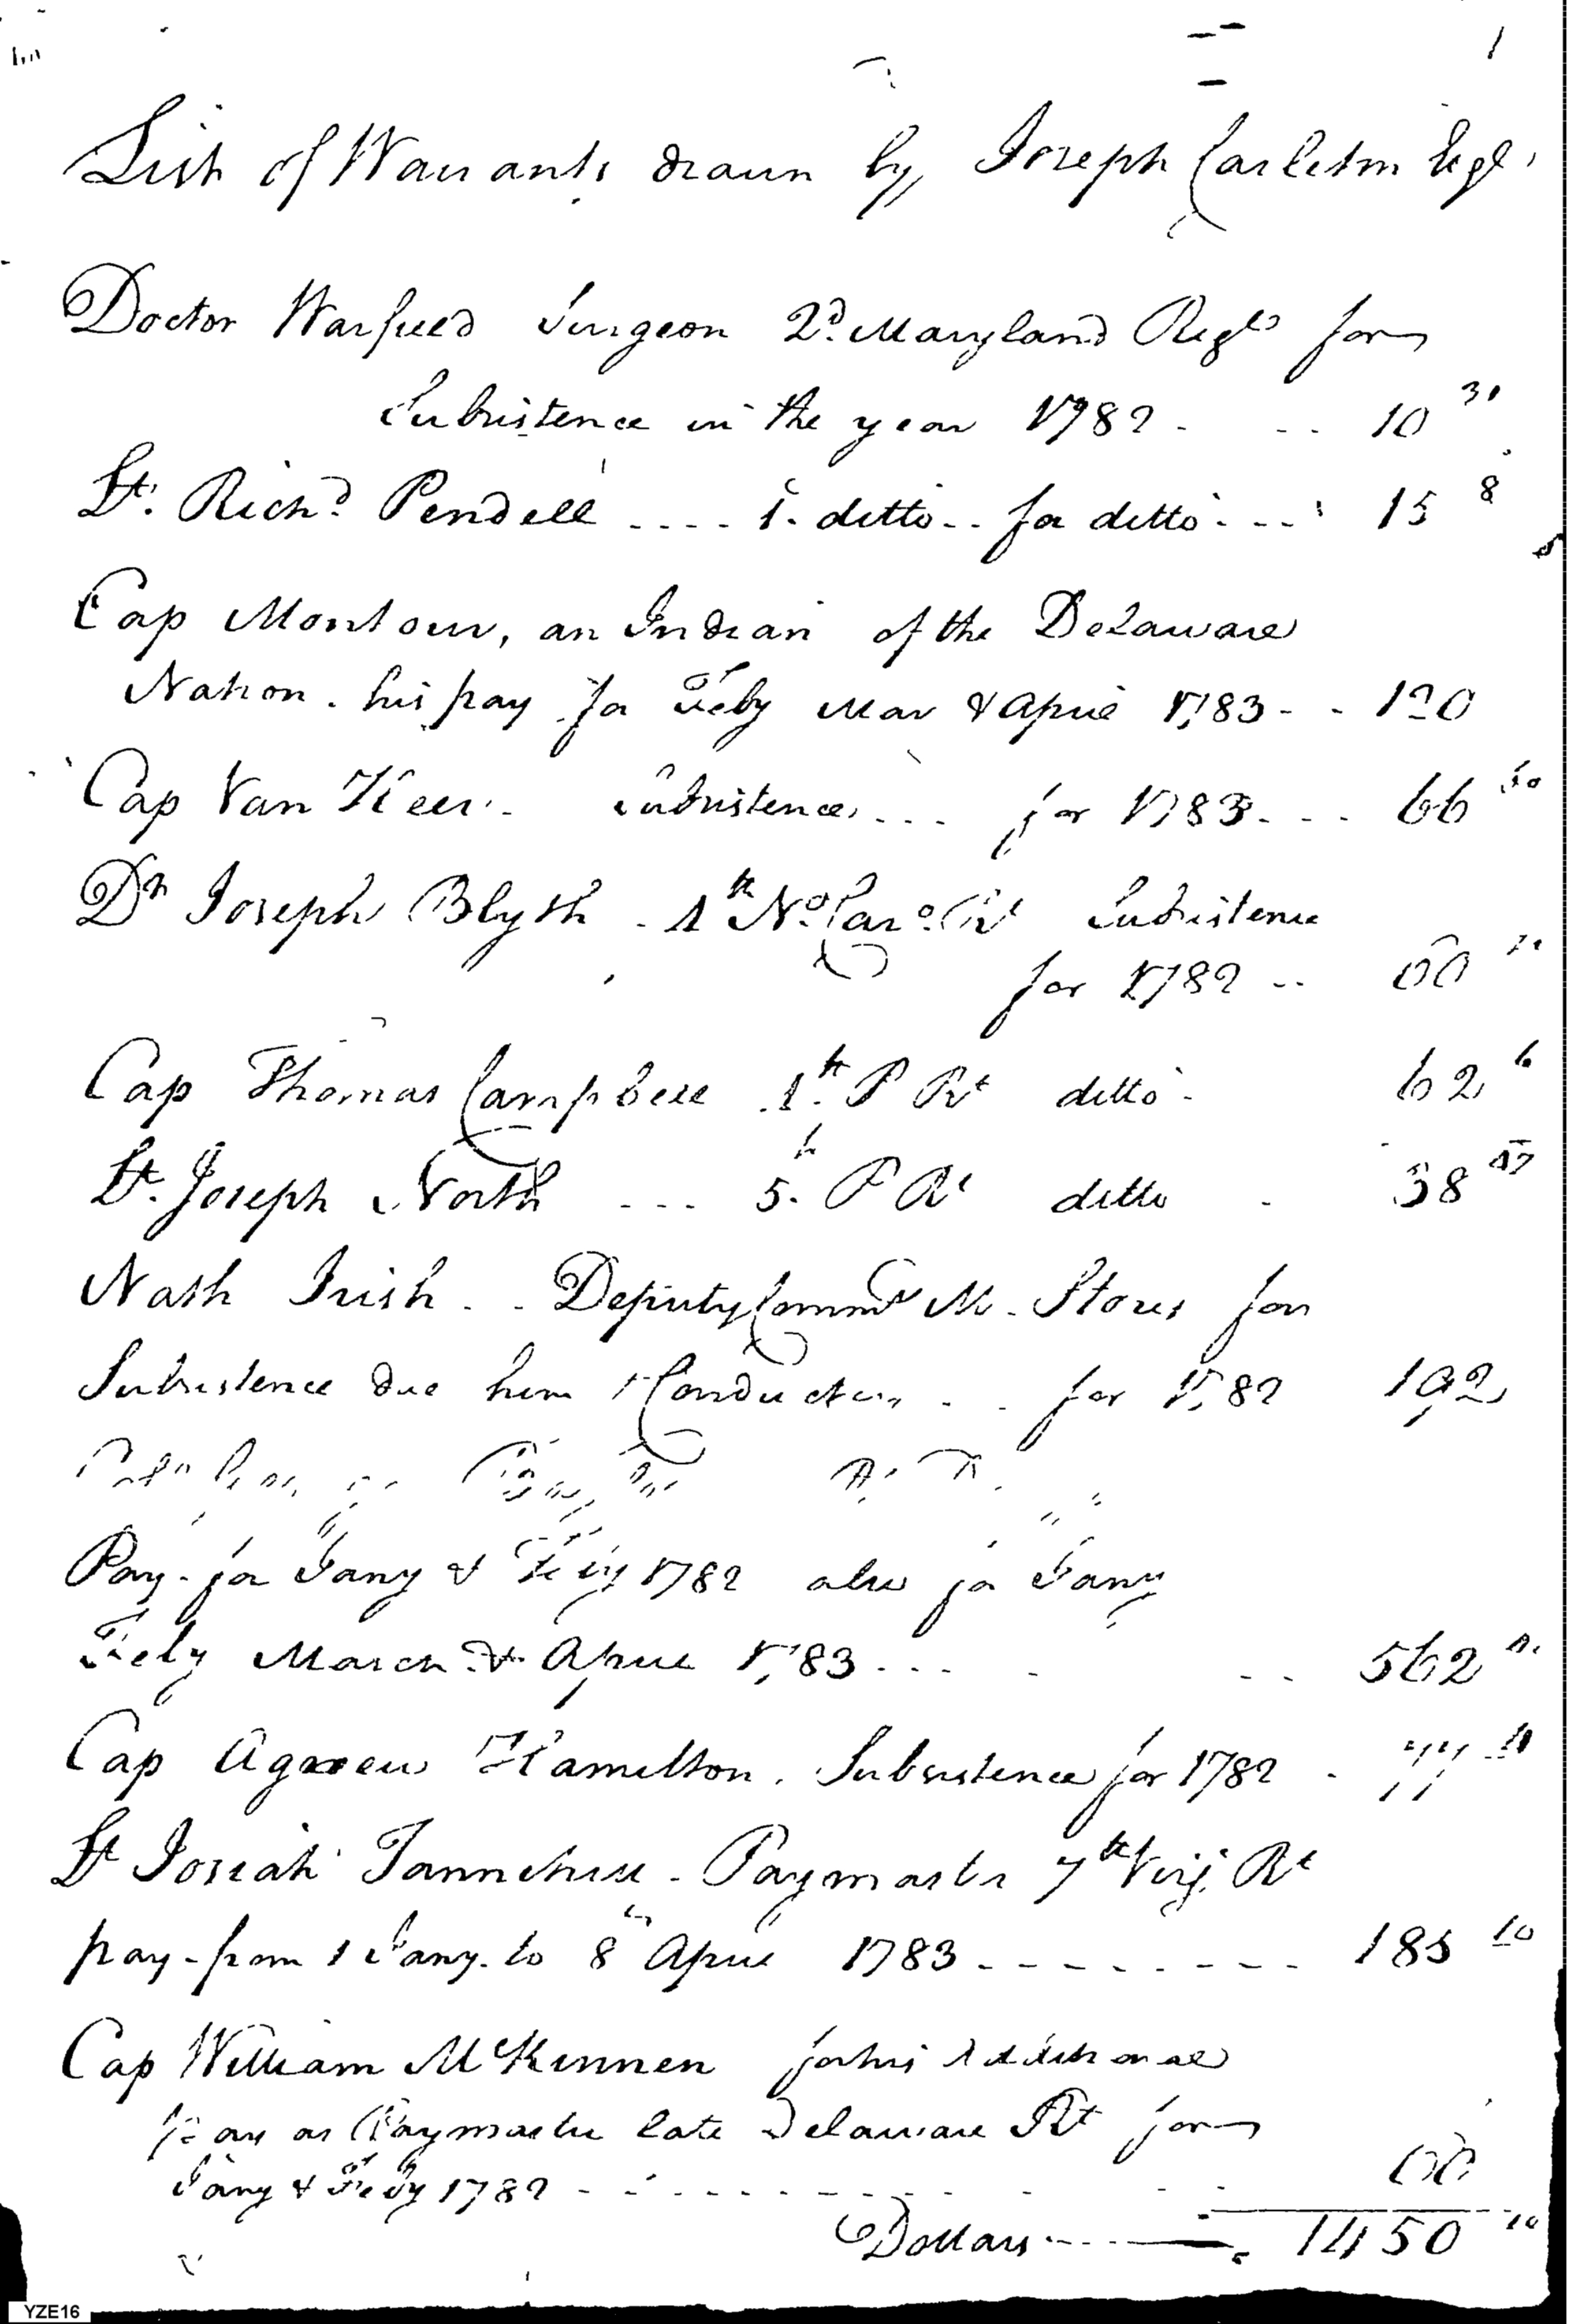 List of Warrants drawn by Joseph Carleton Esqr.
Doctor Warfield Surgeon 2d. Maryland Regt for
Subsistence in the year 1782 - - - 10 31
Lt. Richd. Pendell .... 1. ditto .. for ditto - - - 15 8
Cap Montour, an Indian of the Delaware
Nation. his pay for Feby Mar & April 1783 - - 120
Cap Van Heer. Subsistence ... for 1783 - - - 66 50
Dr Joseph Blyth - 1st No. Caro. Rt Subsistence
for 1782 .. 60
Cap Thomas Campbell 1st P Rt ditto - 62 6
Lt. Joseph North ... 5th P Rt ditto - 38 47
Nath Irish - - Deputy Commy M. Stores for
Subsistence due him & Conductors - - for 1782 192
Pay for Jany & Feby 1782 also for Jany
Feby March & April 1783 ... - - - 562
Cap Agnew Hamilton. Subsistence for 1782 - 77
Lt Josiah Tannehill - Paymaster 7th Virg. Rt
pay - from 1 Jany. to 8th April 1783 - - - - - - - - 185 10
Cap William McKennen for his additional
pay as Paymaster late Delaware Rt for
Jany & Feby 1782 - - - - - - - - - - - 60
Dollars - - - - 1450
YZE16